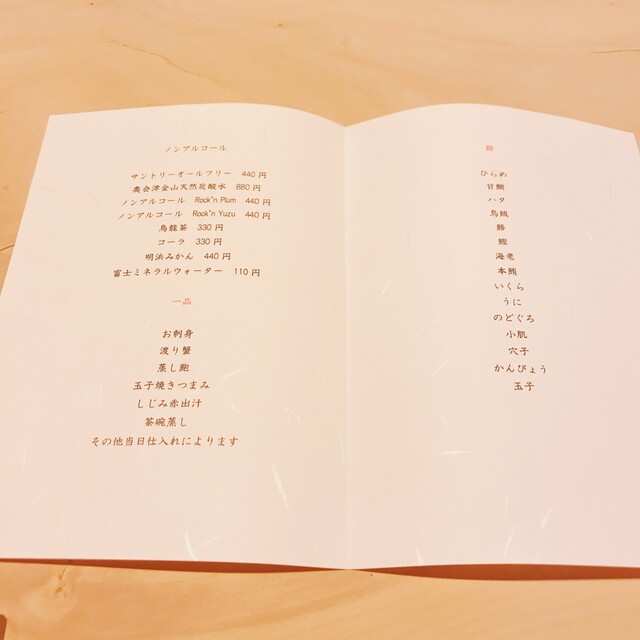 ノンアルコール
サントリーオールフリー 440円
奥会津金山天然炭酸水 880円
ノンアルコール Rock'n Plum 440円
ノンアルコール Rock'n Yuzu 440円
烏龍茶 330円
コーラ 330円
明浜みかん 440円
富士ミネラルウォーター 110円
一品
お刺身
渡り蟹
蒸し鮑
玉子焼きつまみ
しじみ赤出汁
茶碗蒸し
その他当日仕入れによります
ひらめ
甘鯛
ハタ
烏賊
鰹
海老
本鮪
いくら
うに
のどぐろ
小肌
穴子
かんぴょう
玉子